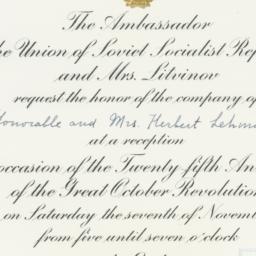 The Ambassador
the Union of Soviet Socialist Rep
and Mrs. Litvinov
request the honor of the company of
Honorable and Mrs. Herbert Lehma
at a reception
occasion of the Twenty-fifth An
of the Great October Revolution
on Saturday the seventh of Novem
from five until seven o'clock